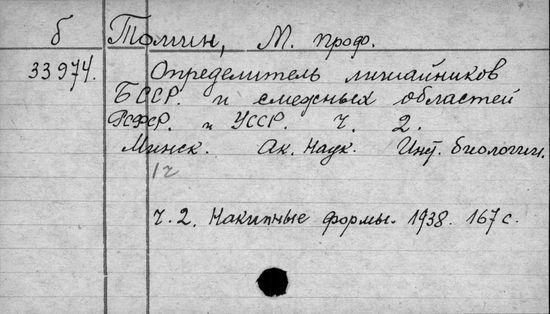 б Томин, М. проф.
33974. Определитель лишайников
БССР. и смежных областей
РСФСР. и УССР. ч. 2.
Минск. Ак. Наук. Инт. биологии.
1г
ч. 2. Накипные формы. 1938. 167 с.